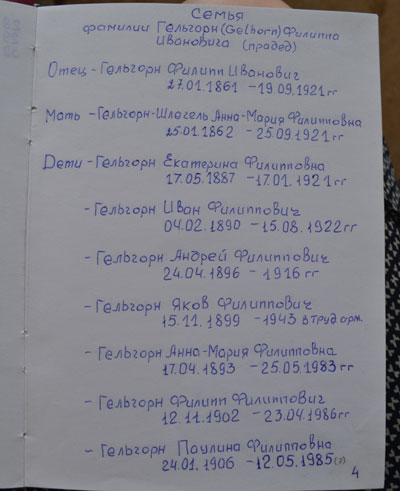 Семья
фамилии Гельгорн (Gelhorn) Филиппа
Ивановича (прадед)
Отец - Гельгорн Филипп Иванович
27.01.1861 - 19.09.1921гг
Мать - Гельгорн-Шлегель Анна-Мария Филипповна
25.01.1862 - 25.09.1921гг
Дети - Гельгорн Екатерина Филипповна
17.05.1887 - 17.01.1921гг
- Гельгорн Иван Филиппович
04.02.1890 - 15.08.1922гг
- Гельгорн Андрей Филиппович
24.04.1896 - 1916гг
- Гельгорн Яков Филиппович
15.11.1899 - 1943 в труд арм.
- Гельгорн Анна-Мария Филипповна
17.04.1893 - 25.05.1983гг
- Гельгорн Филипп Филиппович
12.11.1902 - 23.04.1986гг
- Гельгорн Паулина Филипповна
24.01.1906 - 12.05.1985(?)
4